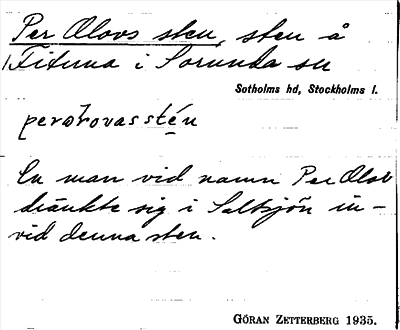 Per Olovs sten, sten å
Fituna i Sorunda sn
Sotholms hd, Stockholms l.
perωrovas stén
En man vid namn Per Olov
dränkte sig i Saltsjön in-
vid denna sten.
GÖRAN ZETTERBERG 1935.